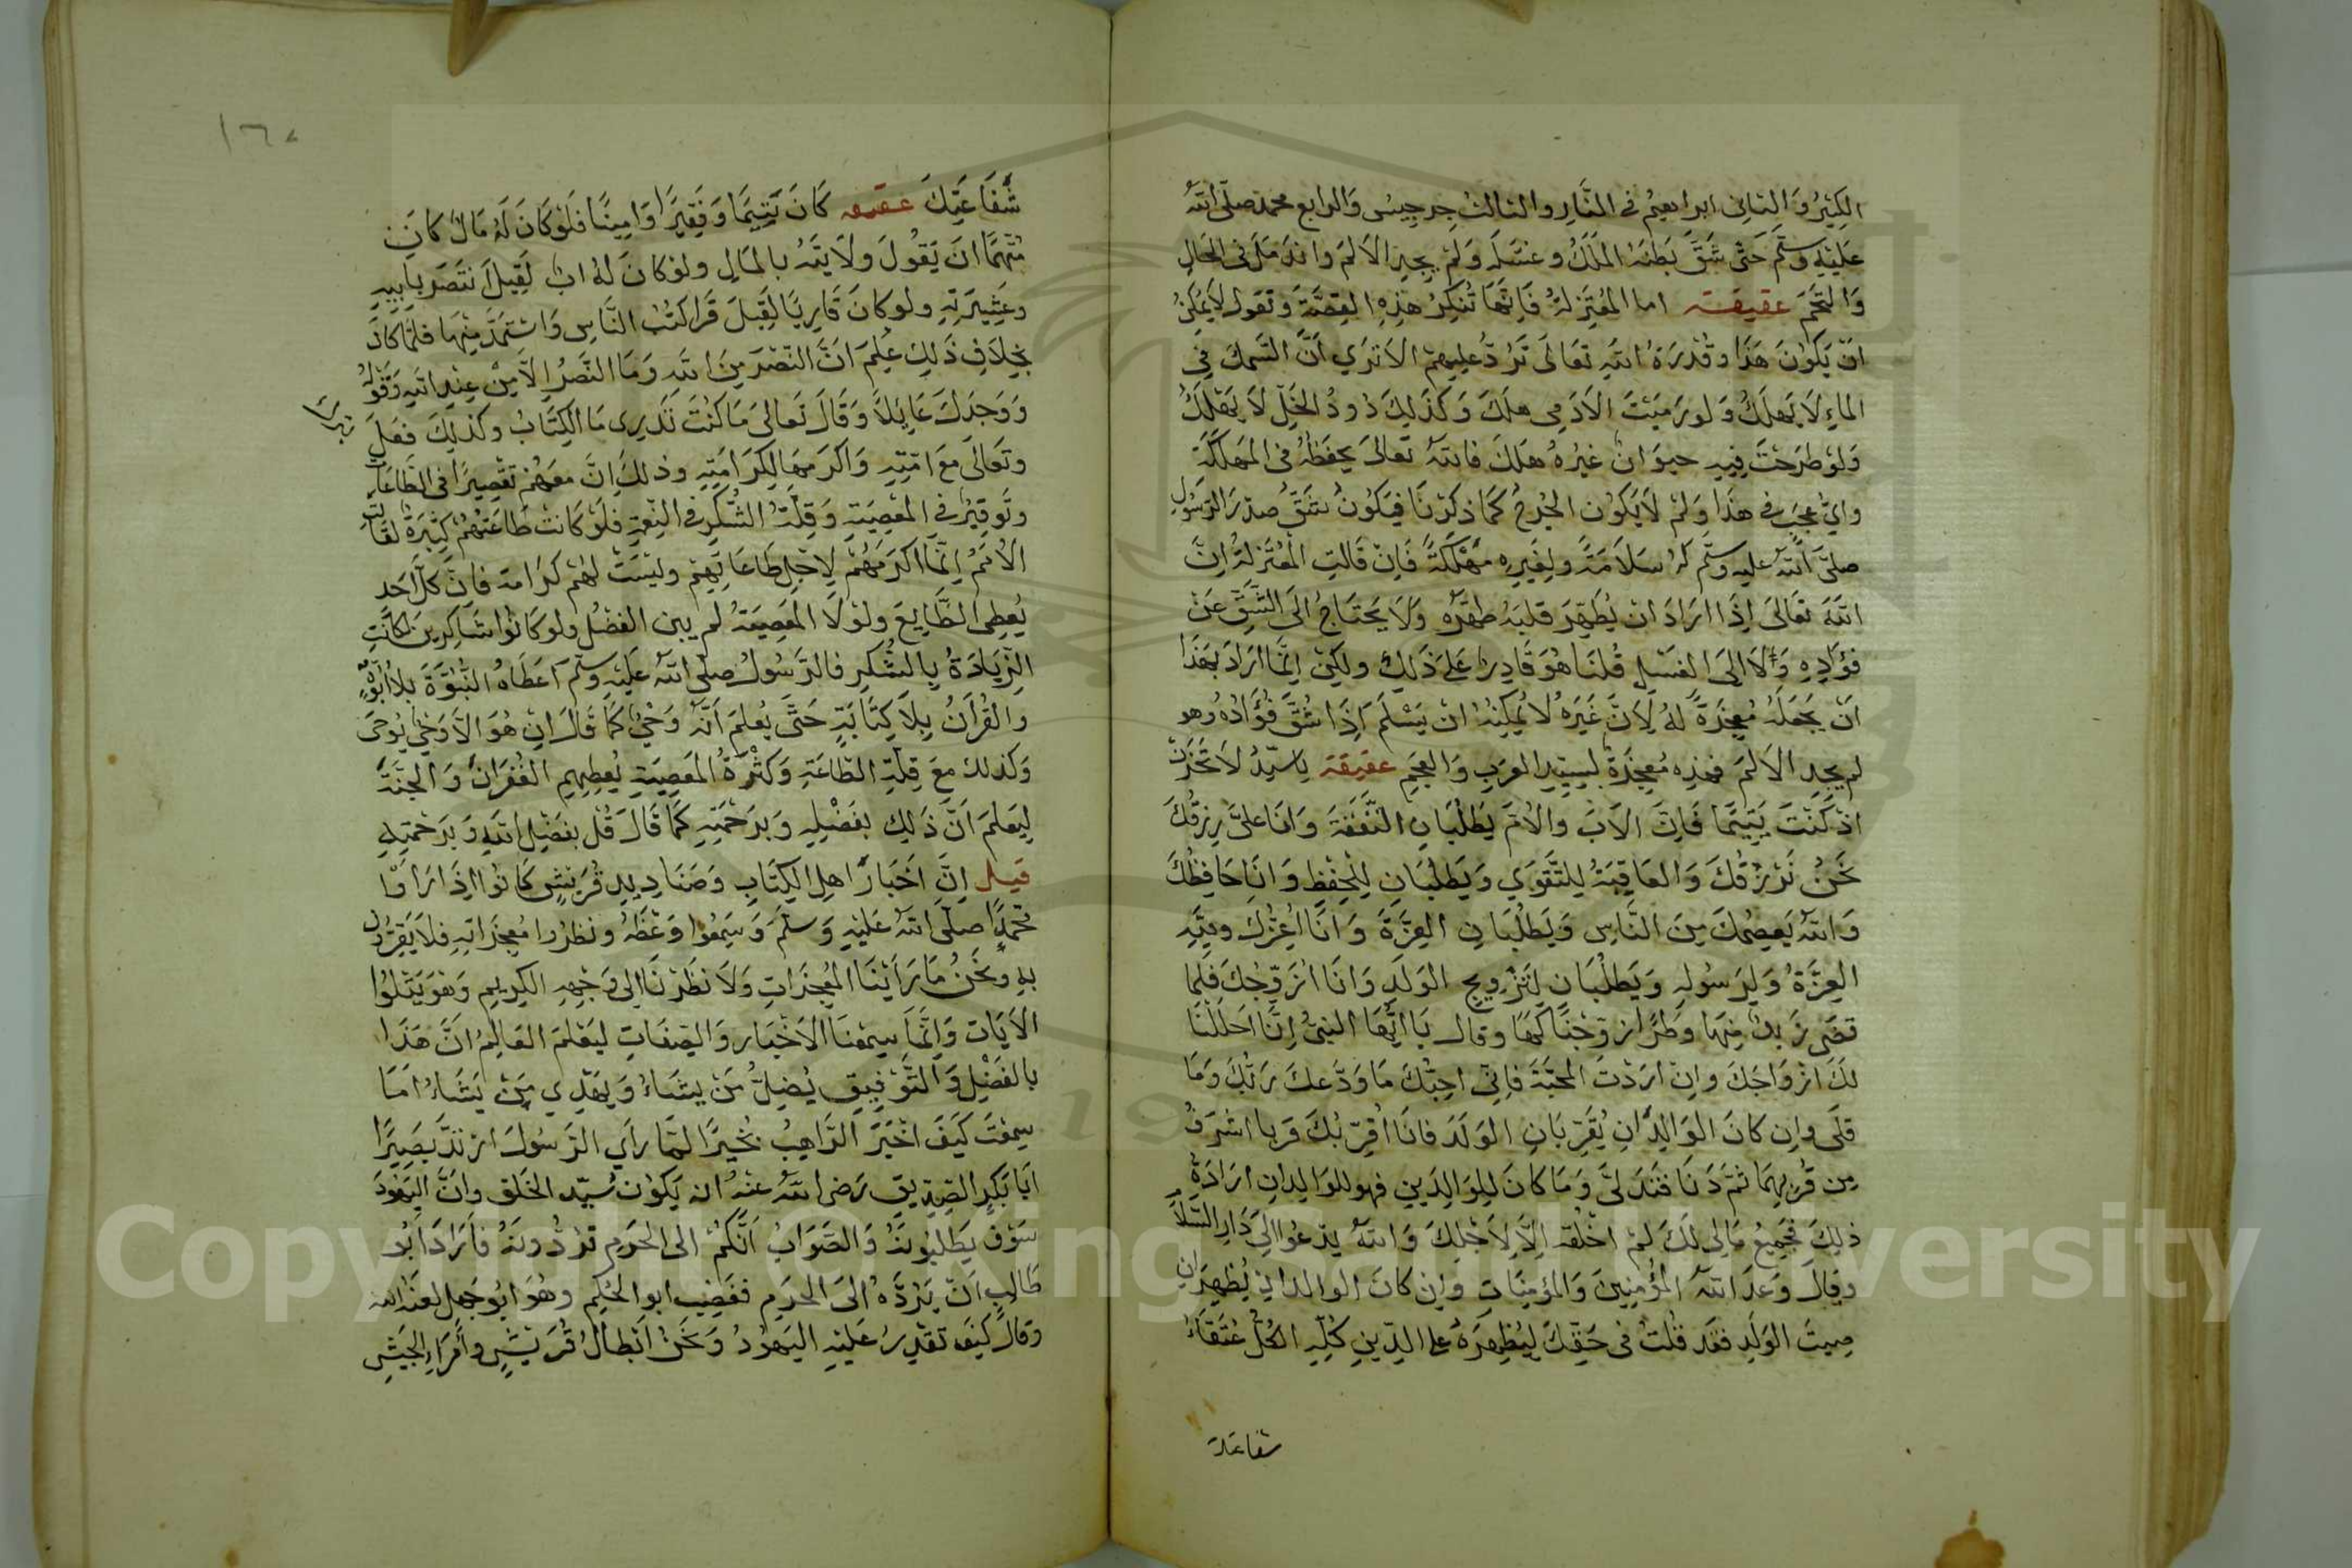 الكثير والثاني ابراهيم في النار والثالث جرجيس والرابع محمد صلى الله
عليه وسلم حتى شق بطنه الملك وغسله ولم يجد الالم واندمل في الحال
والتحم عقيقة اما المعتزلة فانها تنكر هذه القصة وتقول لا يمكن
ان يكون هذا وقدرة الله تعالى ترد عليهم الا ترى ان السمك في
الماء لا يهلك ولو رميت الادمي هلك وكذلك دود الخل لا يهلك
ولو طرحت فيه حيوان غيره هلك فالله تعالى يحفظه في المهلكة
واي عجب في هذا ولم لا يكون الجرح كما ذكرنا فيكون شق صدر الرسول
صلى الله عليه وسلم له سلامة ولغيره مهلكة فان قالت المعتزلة ان
الله تعالى اذا اراد ان يطهر قلبه طهره ولا يحتاج الى الشق عن
فؤاده ولا الى الغسل قلنا هو قادر على ذلك ولكن انما اراد بهذا
ان يجعله معجزة له لان غيره لا يمكنه ان يسلم اذا شق فؤاده وهو
لم يجد الالم فهذه معجزة لسيد العرب والعجم عقيقة يا سيد لا تحزن
اذ كنت يتيما فان الاب والام يطلبان النفقة وانا علي رزقك
نحن نرزقك والعاقبة للتقوى ويطلبان للحفظ وانا حافظك
والله يعصمك من الناس ويطلبان العزة وانا اعزك ولله
العزة ولرسوله ويطلبان لتزويج الولد وانا ازوجك فلما
قضى زيد منها وطرا زوجناكها وقال يا ايها النبي انا احللنا
لك ازواجك وان اردت المحبة فاني احبك ما ودعك ربك وما
قلى وان كان الوالدان يقربان الولد فانا اقربك قربا اشرف
من قربهما ثم دنا فتدلى وما كان للوالدين فهو للوالدان ارادة
ذلك فجميع مالي لك لم اخلقه الا لاجلك والله يدعوا الى دار السلام
وقال وعد الله المؤمنين والمؤمنات وان كان الوالدان يظهران
صيت الولد فقد قلت في حقك ليظهره على الدين كله الكل عتقاء
شفاعة
شفاعتك عقيقه كان يتيما وفقيرا وامينا فلو كان له مال كان
متهما ان يقول ولايته بالمال ولو كان له اب لقيل انتصر بابيه
وعشيرته ولو كان قاريا لقيل قرا كتب الناس واستمد منها فلما كان
بخلاف ذلك علم ان النصر من الله وما النصر الا من عند الله وقوله
ووجدك عايلا وقال تعالى ما كنت تدري ما الكتاب وكذلك فعل
وتعالى مع امته واكرمها لكرامته وذلك ان معهم تقصيرا في الطاعات
وتوقير في المعصية وقلة الشكر في النعم فلو كانت طاعتهم كثيرة لقالت
الامم انما اكرمهم لاجل طاعاتهم وليست لهم كرامة فان كل احد
يعطي الطايع ولولا المعصية لم يبن الفضل ولو كانوا شاكرين لكانت
الزيادة بالشكر فالرسول صلى الله عليه وسلم اعطاه النبوة بلا ابوة
والقران بلا كتابة حتى يعلم انه وحي كما قال ان هو الا وحي يوحى
وكذلك مع قلة الطاعة وكثرة المعصية يعطيهم الغفران والجنة
ليعلم ان ذلك بفضله وبرحمته كما قال قل بفضل الله وبرحمته
قيل ان اخبار اهل الكتاب وصناديد قريش كانوا اذا راوا
محمدا صلى الله عليه وسلم وسمعوا وعظه ونظروا معجزاته فلا يقرون
به ونحن ما راينا المعجزات ولا نظرنا الى وجهه الكريم وهو يتلوا
الايات وانما سمعنا الاخبار والصفات ليعلم العالم ان هذا
بالفضل والتوفيق يضل من يشاء ويهدي من يشاء اما
سمعت كيف اخبر الراهب بحيرا لما راي الرسول
ابا بكر الصديق رضي الله عنه انه يكون سيد الخلق وان اليهود
سوف يطلبونه والصواب انكم الى الحرم تردونه فاراد ابو
طالب ان يرده الى الحرم فغضب ابو الحكم وهو ابو جهل لعنه الله
وقال كيف تقدر عليه اليهود ونحن ابطال قريش وامراء الجيش